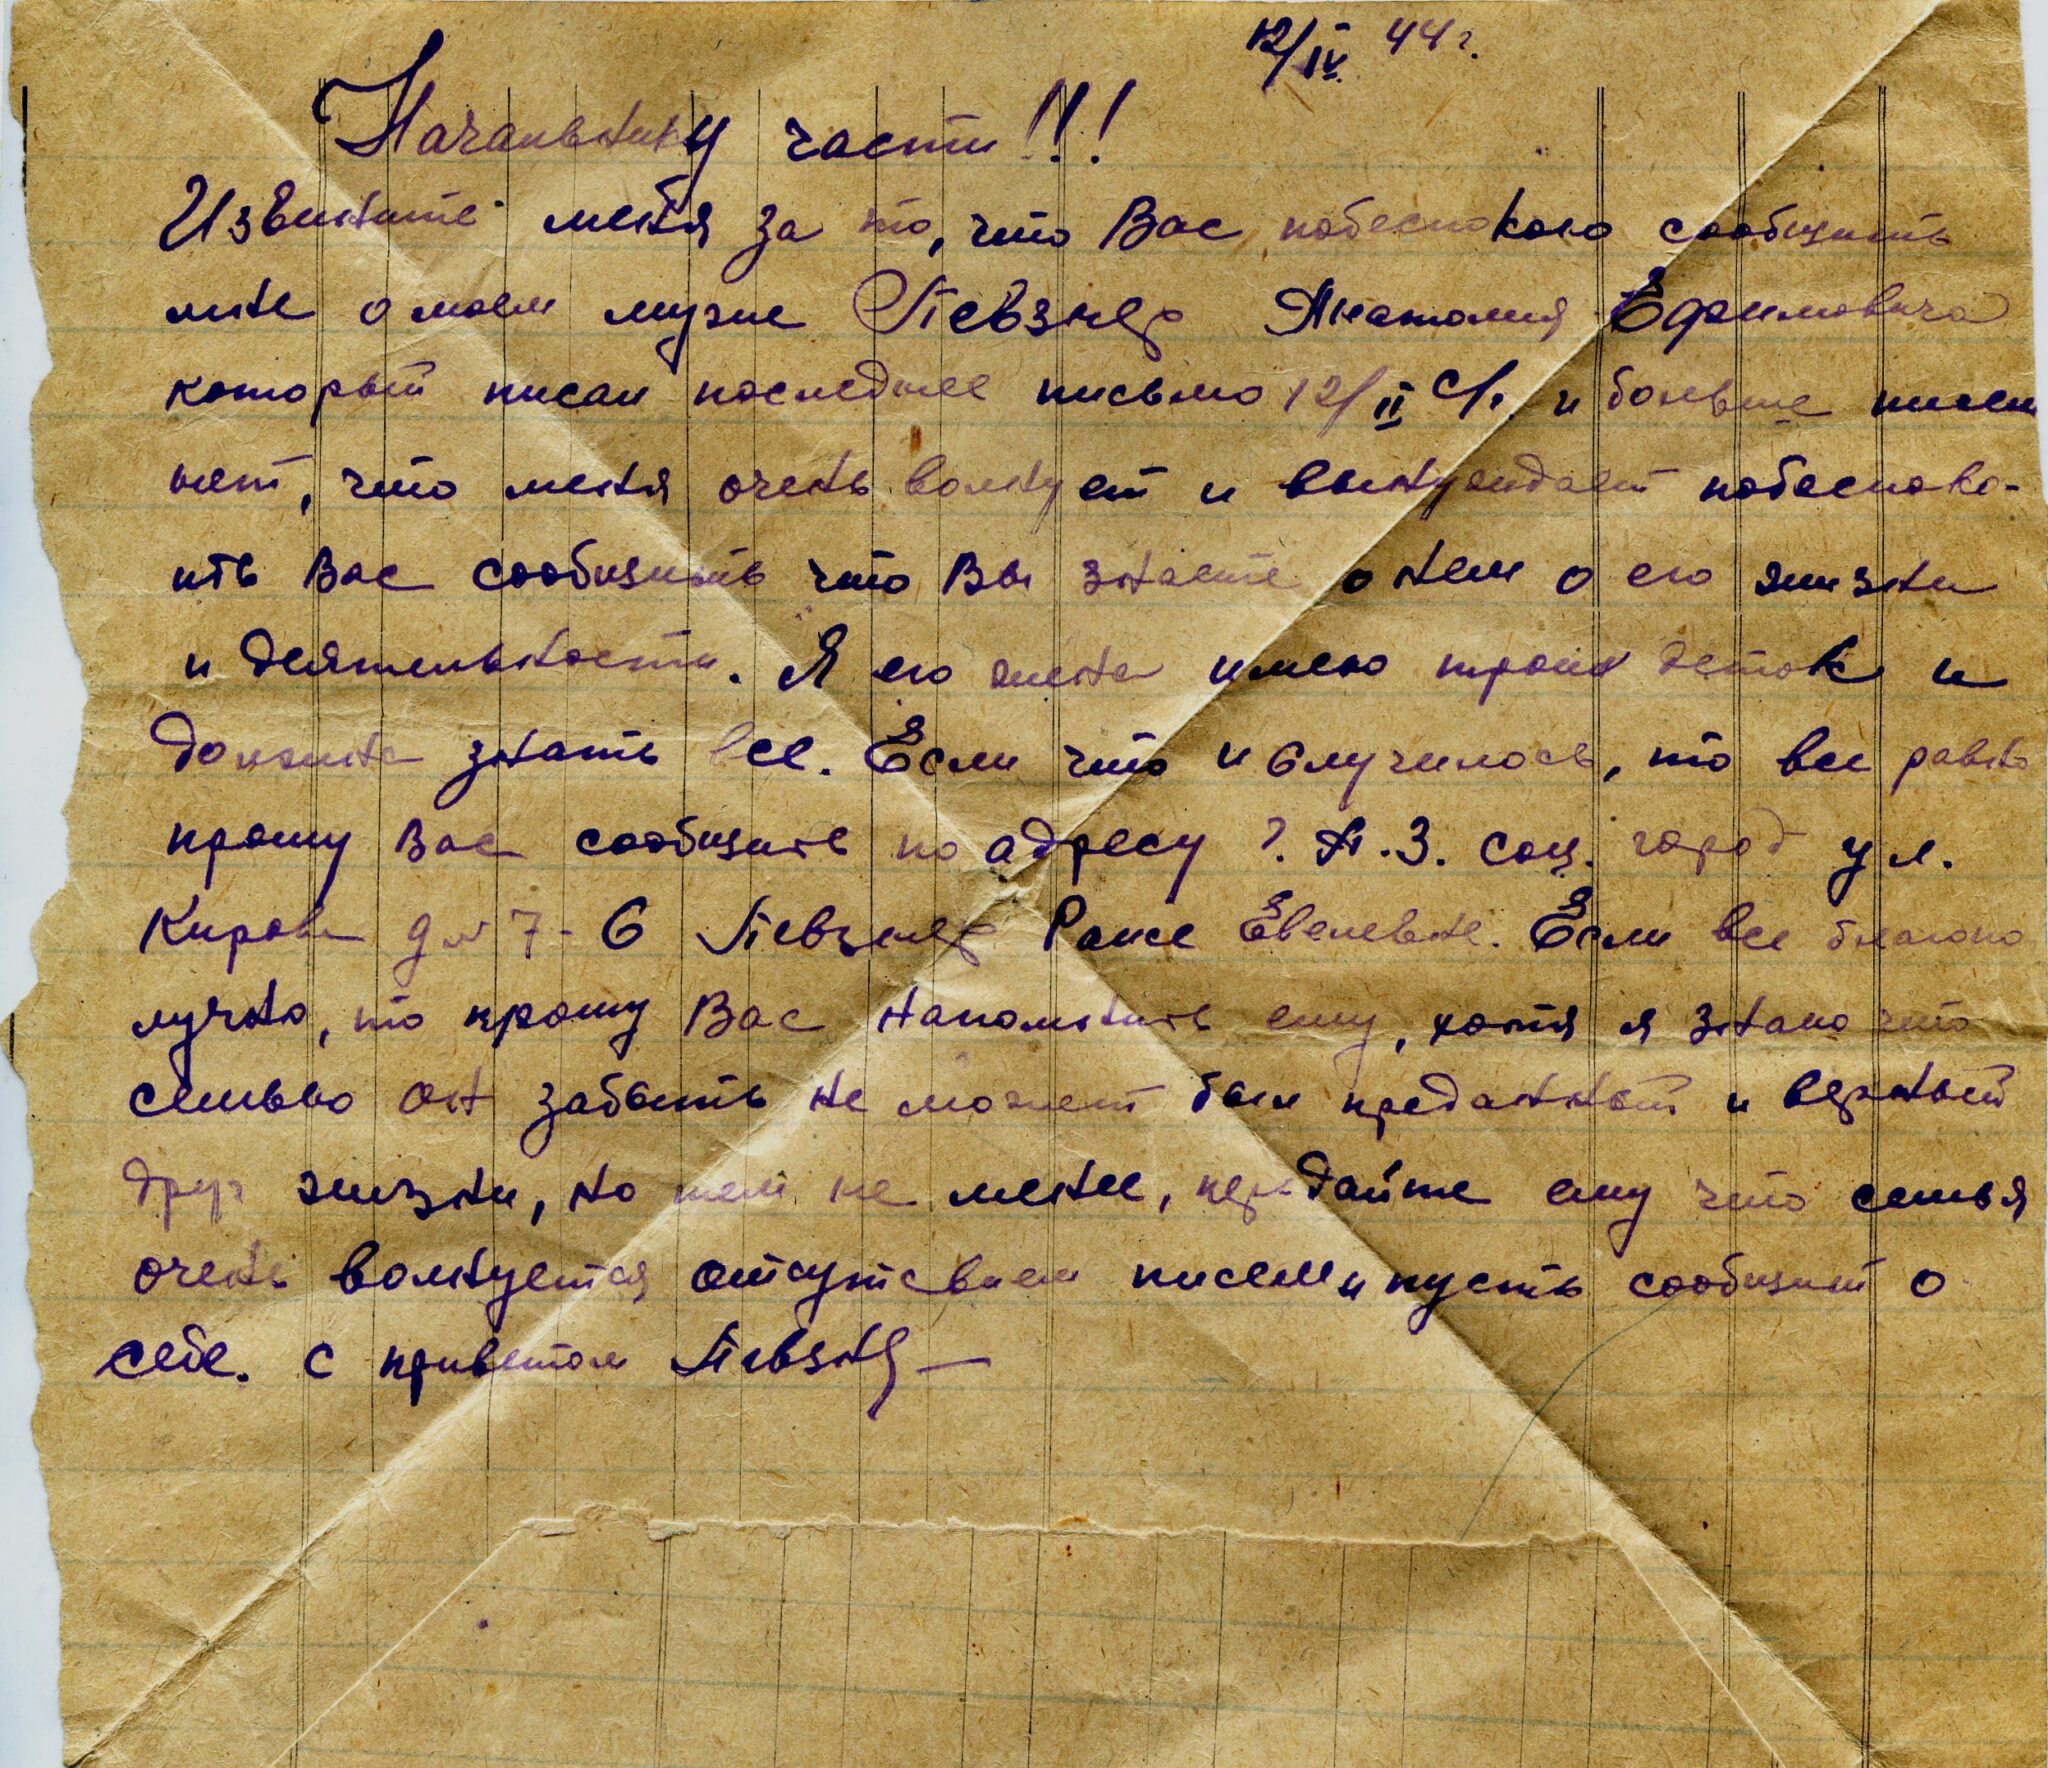 12/IV 44 г.
Начальнику части!!!
Извините меня за то, что Вас побеспокою сообщить
мне о моем муже Певзнер Анатолия Ефимовича
который писал последнее письмо 12/II с/г. и больше писем
нет, что меня очень волнует и вынуждает побеспоко-
ить Вас сообщить что Вы знаете о нем о его жизни
и деятельности. Я его жена имею троих деток и
должна знать все. Если что и случилось, то все равно
прошу Вас сообщить по адресу г. А.З. соц. город ул.
Кирова д № 7-6 Певзнер Раисе Евельевне. Если все благопо
лучно, то прошу Вас напомнить ему, хотя я знаю что
семью он забыть не может был преданный и верный
друг жизни, но тем не менее, передайте ему что семья
очень волнуется отсутсвием писем и пусть сообщит о
себе. с приветом Певзнер